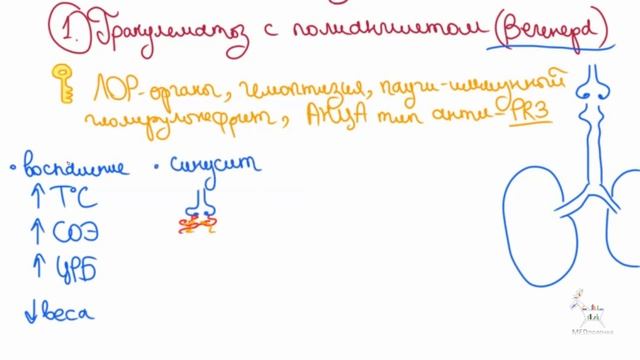 1. Гранулематоз с полиангиитом (Вегенера)
ЛОР-органы, гемоптизия, пауци-иммунный
гломерулонефрит, АНЦА тип анти-PR3
• воспаление
↑ T°C
↑ СОЭ
↑ ЦРБ
↓ веса
• синусит